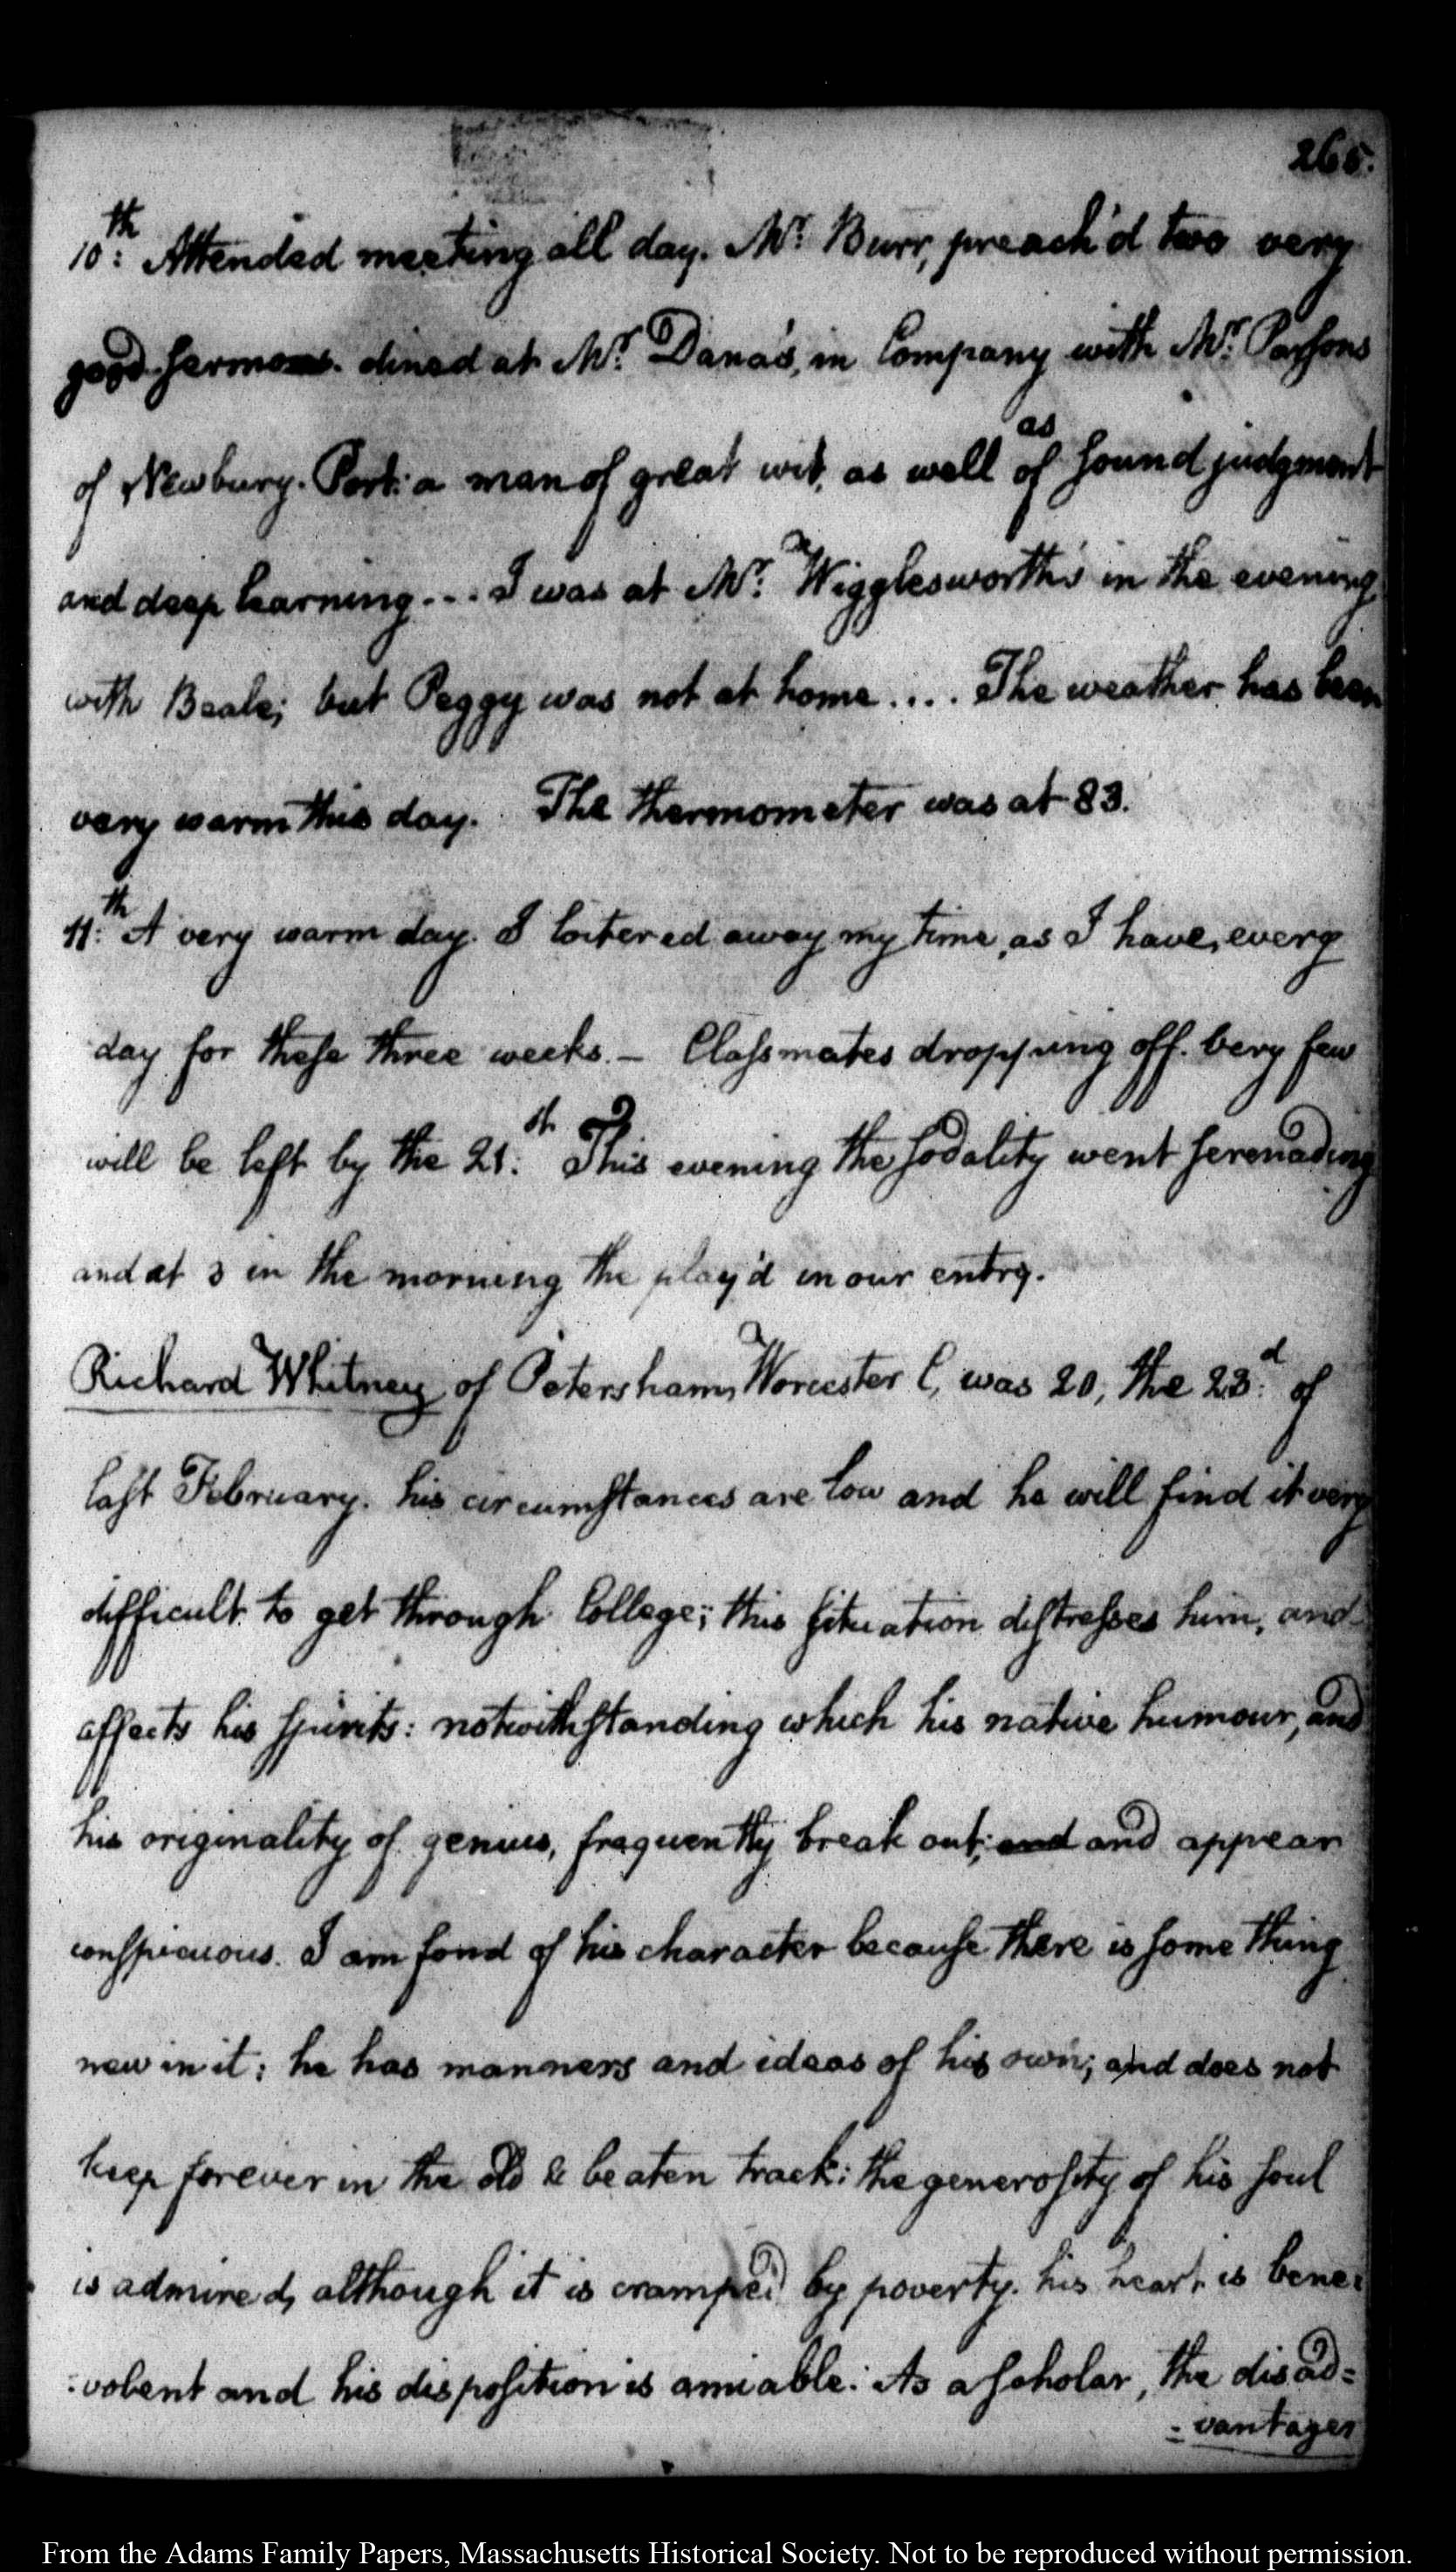 265.
10th: Attended meeting all day. Mr. Burr, preach'd two very
good sermons. dined at Mr. Dana's, in Company with Mr. Parsons
of Newbury-Port: a man of great wit, as well as of sound judgment
and deep learning... I was at Mr. Wigglesworth's in the evening
with Beale; but Peggy was not at home.... The weather has been
very warm this day. The thermometer was at 83.
11th: A very warm day. I loitered away my time, as I have, every
day for these three weeks. — Classmates dropping off. very few
will be left by the 21st: This evening the sodality went serenading
and at 3 in the morning the play'd in our entry.
Richard Whitney of Petersham, Worcester C, was 20, the 23d: of
last February. his circumstances are low and he will find it very
difficult to get through College; this situation distresses him, and
affects his spirits: notwithstanding which his native humour, and
his originality of genius, frequently break out; and and appear
conspicuous. I am fond of his character because there is something
new in it: he has manners and ideas of his own; and does not
keep forever in the old & beaten track: the generosity of his soul
is admired, although it is cramped by poverty. his heart is bene:
:volent and his disposition is amiable: As a scholar, the disad=
=vantages
From the Adams Family Papers, Massachusetts Historical Society. Not to be reproduced without permission.